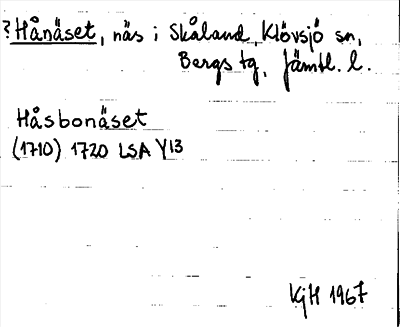 ?Hånäset, näs i Skåland, Klövsjö sn,
Bergs tg, Jämtl. l.
Håsbonäset
(1710) 1720 LSA Y13
KjH 1967